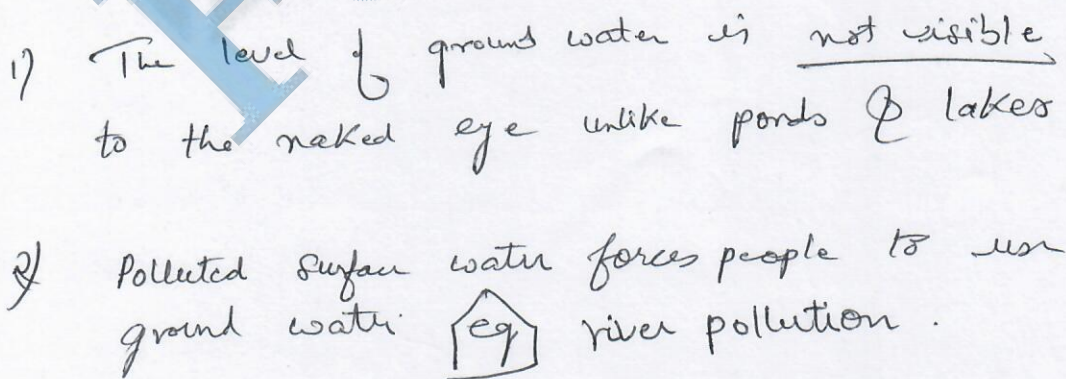 1) The level of ground water is not visible
to the naked eye unlike ponds & lakes
2) Polluted surface water forces people to use
ground water. eg river pollution.